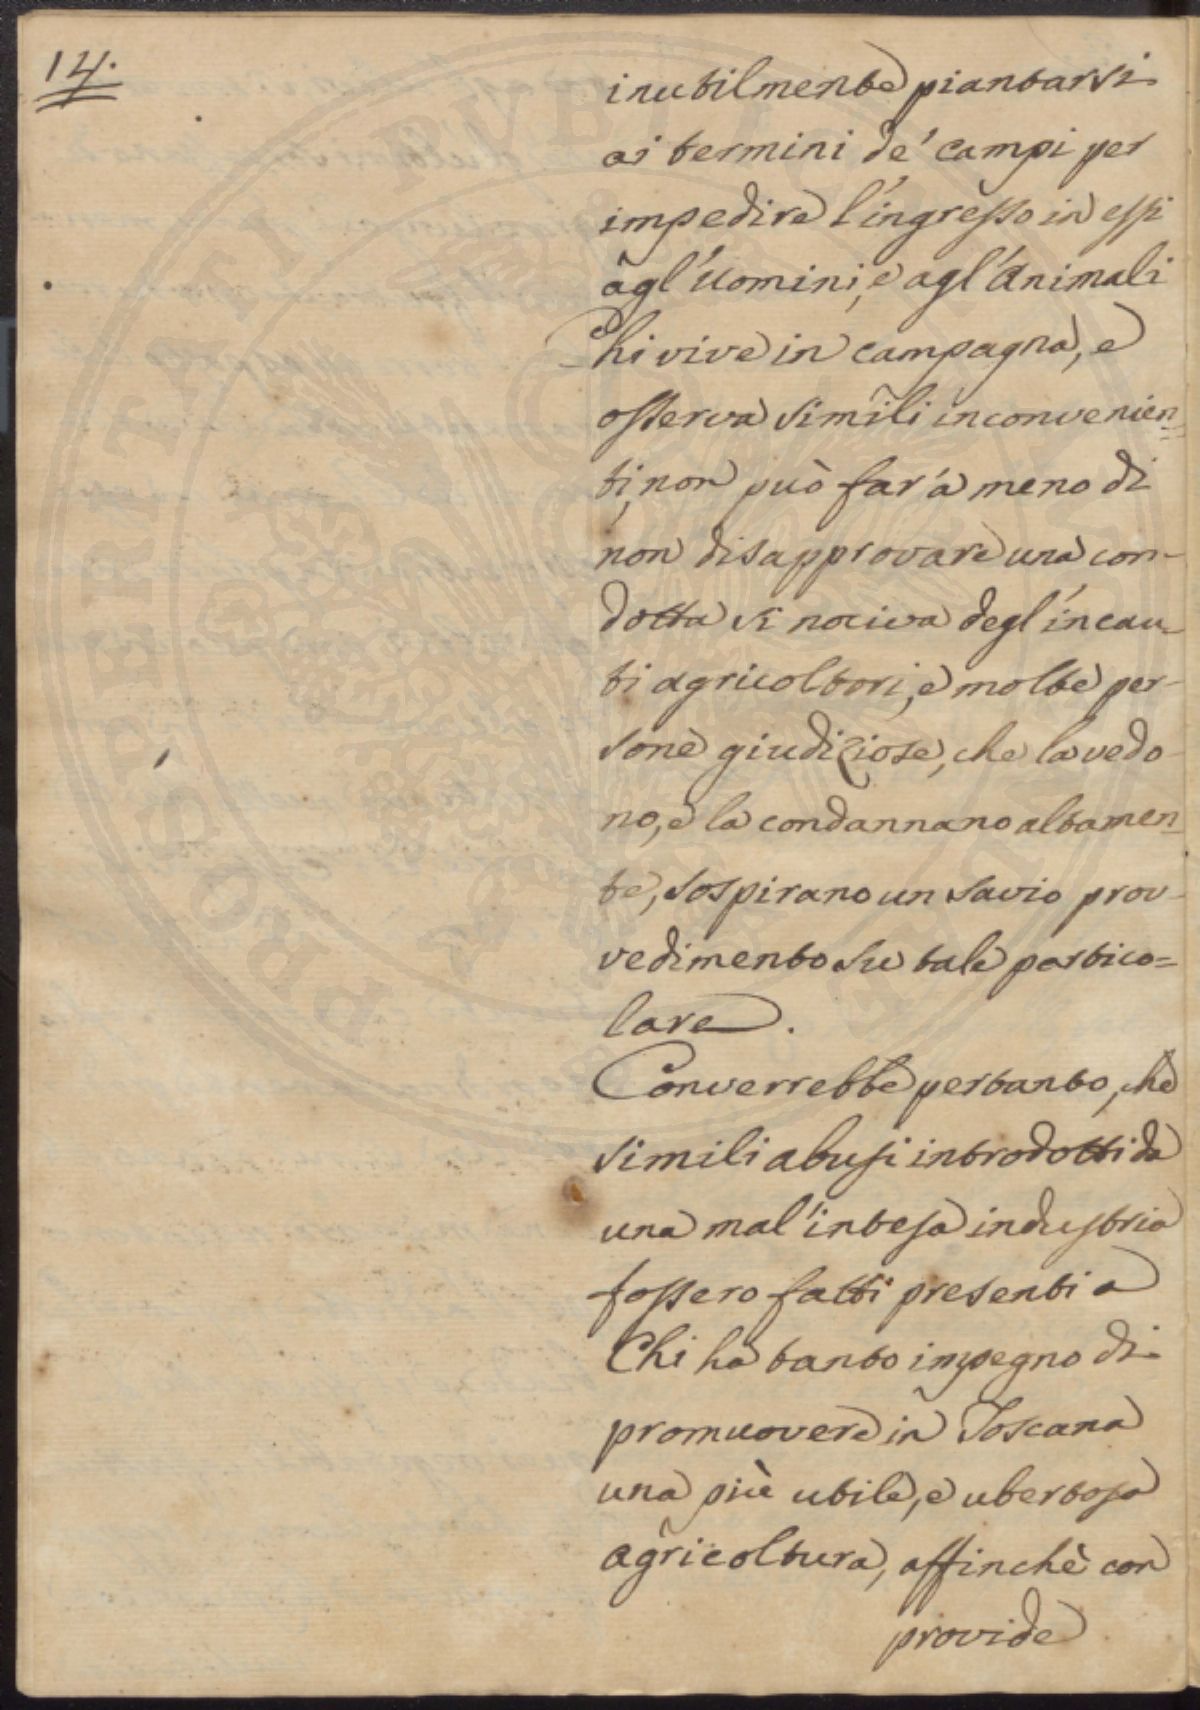 14.
inutilmente piantarsi
ai termini de' campi per
impedire l'ingresso in essi
agl'uomini, e agl'animali
Chi vive in campagna, e
osserva simili inconvenien=
ti, non può far' a meno di
non disapprovare una con-
dotta si nociva degl'incau-
ti agricoltori, e molte per-
sone giudiziose, che la vedo-
no, e la condannano altamen=
te, sospirano un savio prov-
vedimento su tale partico=
lare.
Converrebbe pertanto, che
simili abusi introdotti da
una mal'intesa industria
fossero fatti presenti a
Chi ha tanto impegno di
promuovere in Toscana
una più utile, e ubertosa
agricoltura, affinchè con
provide
PROSPERITATI PVBLICAE